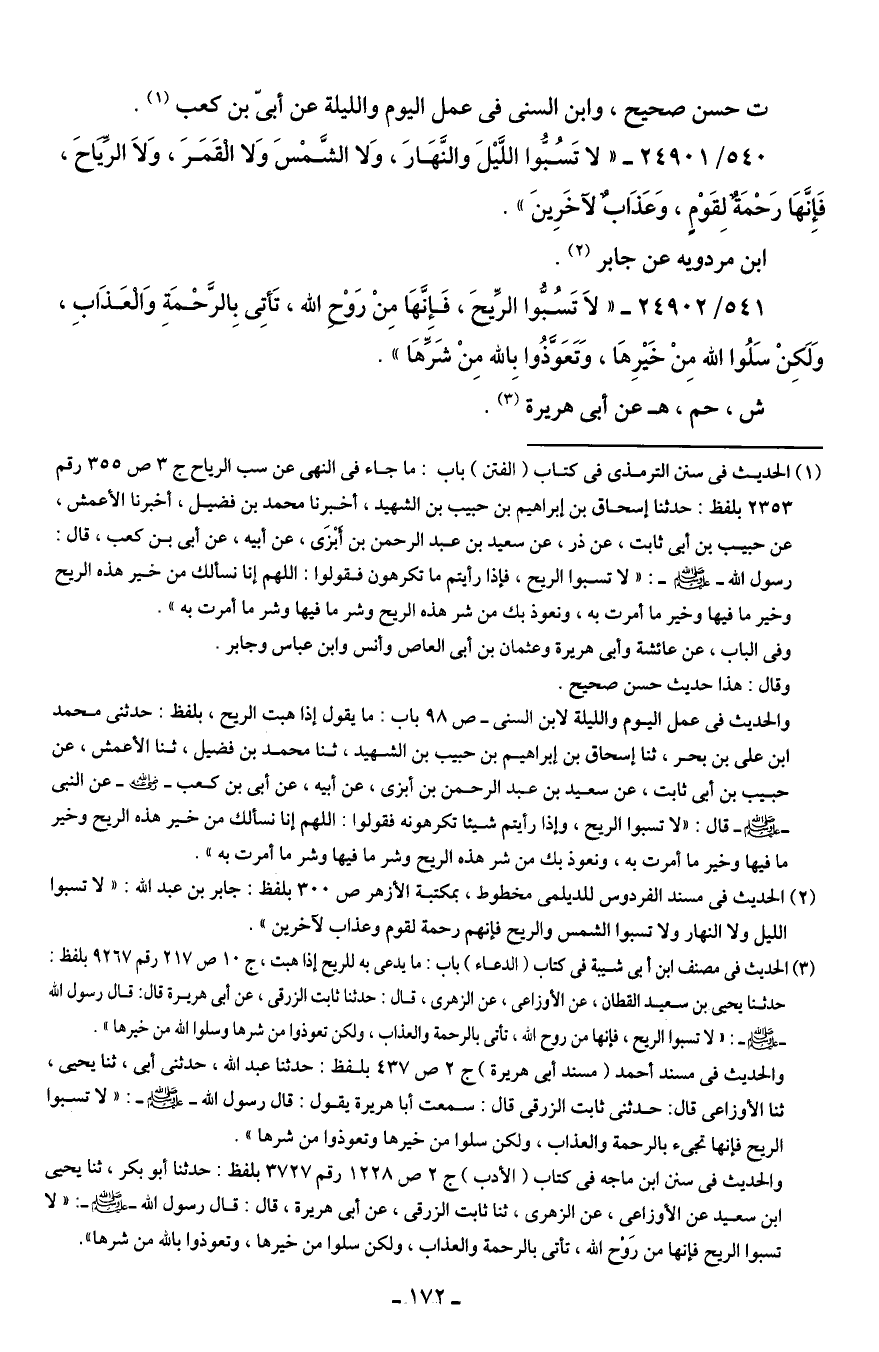 ت حسن صحيح ، وابن السنى فى عمل اليوم والليلة عن أبىّ بن كعب (١) .
٥٤٠/ ٢٤٩٠١ ـ « لا تَسُبُّوا اللَّيْلَ والنَّهَارَ ، وَلا الشَّمْسَ وَلا الْقَمَرَ ، وَلاَ الرِّيَاحَ ،
فَإِنَّهَا رَحْمَةٌ لِقَوْمٍ ، وَعَذَابٌ لآخَرِينَ » .
ابن مردويه عن جابر (٢) .
٥٤١/ ٢٤٩٠٢ ـ « لاَ تَسُبُّوا الرِّيحَ ، فَإِنَّهَا مِنْ رَوْحِ الله ، تَأتِى بِالرَّحْمَةِ وَالْعَذَابِ ،
وَلَكِنْ سَلُوا الله مِنْ خَيْرِهَا ، وَتَعَوَّذُوا بِالله مِنْ شَرِّهَا » .
ش ، حم ، هـ عن أبى هريرة (٣) .
(١) الحديث فى سنن الترمذى فى كتاب ( الفتن ) باب : ما جاء فى النهى عن سب الرياح ج ٣ ص ٣٥٥ رقم
٢٣٥٣ بلفظ : حدثنا إسحاق بن إبراهيم بن حبيب بن الشهيد ، أخبرنا محمد بن فضيل ، أخبرنا الأعمش ،
عن حبيب بن أبى ثابت ، عن ذر ، عن سعيد بن عبد الرحمن بن أَبْزَى ، عن أبيه ، عن أبى بن كعب ، قال :
رسول الله ـ ﷺ ـ : « لا تسبوا الريح ، فإذا رأيتم ما تكرهون فقولوا : اللهم إنا نسألك من خير هذه الريح
وخير ما فيها وخير ما أمرت به ، ونعوذ بك من شر هذه الريح وشر ما فيها وشر ما أمرت به » .
وفى الباب ، عن عائشة وأبى هريرة وعثمان بن أبى العاص وأنس وابن عباس وجابر .
وقال : هذا حديث حسن صحيح .
والحديث فى عمل اليوم والليلة لابن السنى ـ ص ٩٨ باب : ما يقول إذا هبت الريح ، بلفظ : حدثنى محمد
ابن على بن بحر ، ثنا إسحاق بن إبراهيم بن حبيب بن الشهيد ، ثنا محمد بن فضيل ، ثنا الأعمش ، عن
حبيب بن أبى ثابت ، عن سعيد بن عبد الرحمن بن أبزى ، عن أبيه ، عن أبى بن كعب ـ رضي الله عنه ـ عن النبى
ـ ﷺ ـ قال : «لا تسبوا الريح ، وإذا رأيتم شيئا تكرهونه فقولوا : اللهم إنا نسألك من خير هذه الريح وخير
ما فيها وخير ما أمرت به ، ونعوذ بك من شر هذه الريح وشر ما فيها وشر ما أمرت به » .
(٢) الحديث فى مسند الفردوس للديلمى مخطوط ، بمكتبة الأزهر ص ٣٠٠ بلفظ : جابر بن عبد الله : « لا تسبوا
الليل ولا النهار ولا تسبوا الشمس والريح فإنهم رحمة لقوم وعذاب لآخرين » .
(٣) الحديث فى مصنف ابن أبى شيبة فى كتاب ( الدعاء ) باب : ما يدعى به للريح إذا هبت ، ج ١٠ ص ٢١٧ رقم ٩٢٦٧ بلفظ :
حدثنا يحيى بن سعيد القطان ، عن الأوزاعى ، عن الزهرى ، قال : حدثنا ثابت الزرقى ، عن أبى هريرة قال: قال رسول الله
ـ ﷺ ـ : « لا تسبوا الريح ، فإنها من روح الله ، تأتى بالرحمة والعذاب ، ولكن تعوذوا من شرها وسلوا الله من خيرها » .
والحديث فى مسند أحمد ( مسند أبى هريرة ) ج ٢ ص ٤٣٧ بلفظ : حدثنا عبد الله ، حدثنى أبى ، ثنا يحيى ،
ثنا الأوزاعى قال: حدثنى ثابت الزرقى قال : سمعت أبا هريرة يقول : قال رسول الله ـ ﷺ ـ : « لا تسبوا
الريح فإنها تجىء بالرحمة والعذاب ، ولكن سلوا من خيرها وتعوذوا من شرها » .
والحديث فى سنن ابن ماجه فى كتاب ( الأدب ) ج ٢ ص ١٢٢٨ رقم ٣٧٢٧ بلفظ : حدثنا أبو بكر ، ثنا يحيى
ابن سعيد عن الأوزاعى ، عن الزهرى ، ثنا ثابت الزرقى ، عن أبى هريرة ، قال : قال رسول الله ـ ﷺ ـ: « لا
تسبوا الريح فإنها من رَوْح الله ، تأتى بالرحمة والعذاب ، ولكن سلوا من خيرها ، وتعوذوا بالله من شرها».
ـ ١٧٢ ـ